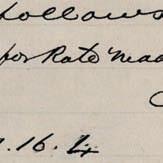 follows
for Rate made
.16.4